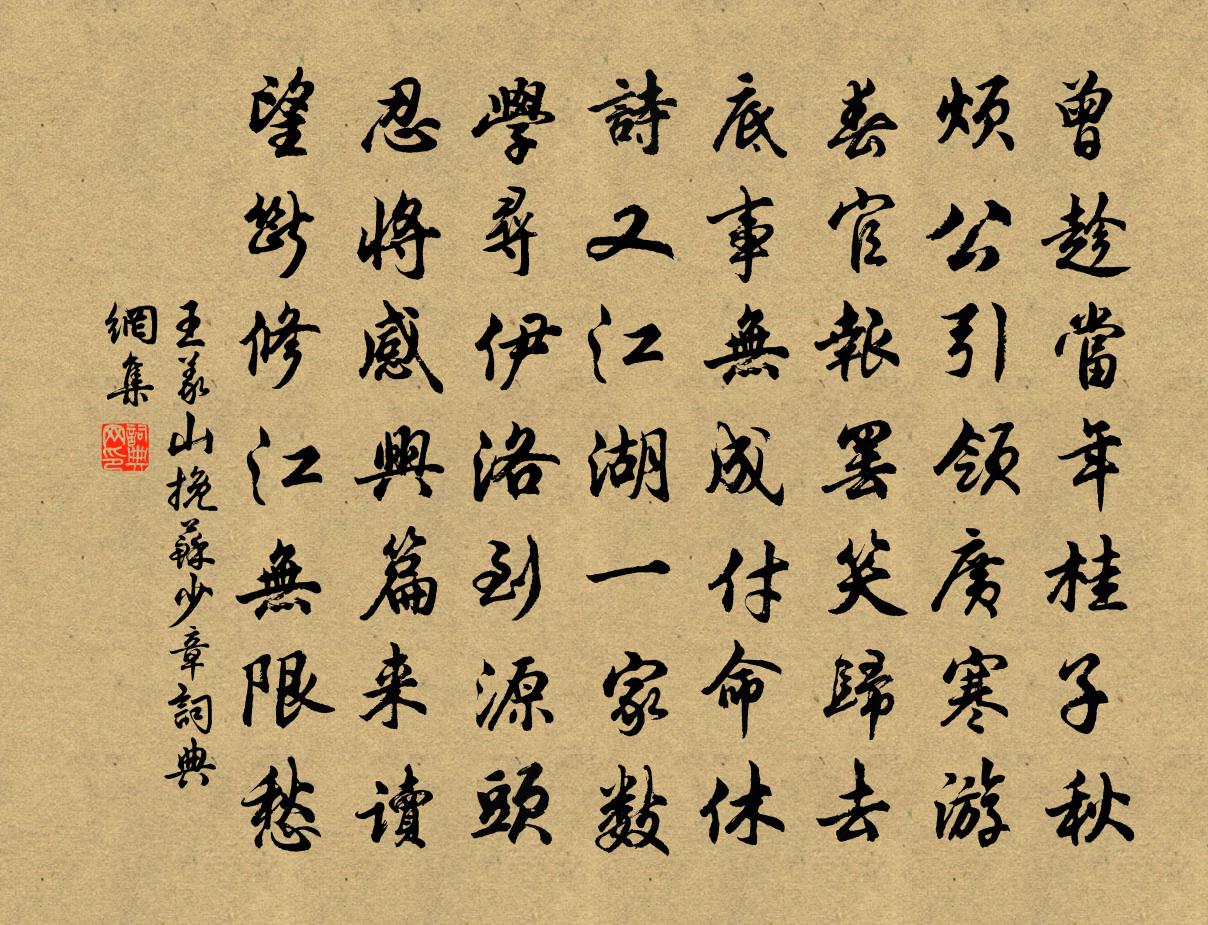 曾趁當年桂子秋
煩公引領廣寒游
春官報罷笑歸去
底事無成付命休
詩又江湖一家數
學尋伊洛到源頭
忍將感興篇來讀
望斷修江無限愁
王義山挽蘇少章詞典
網集
詞典
网印